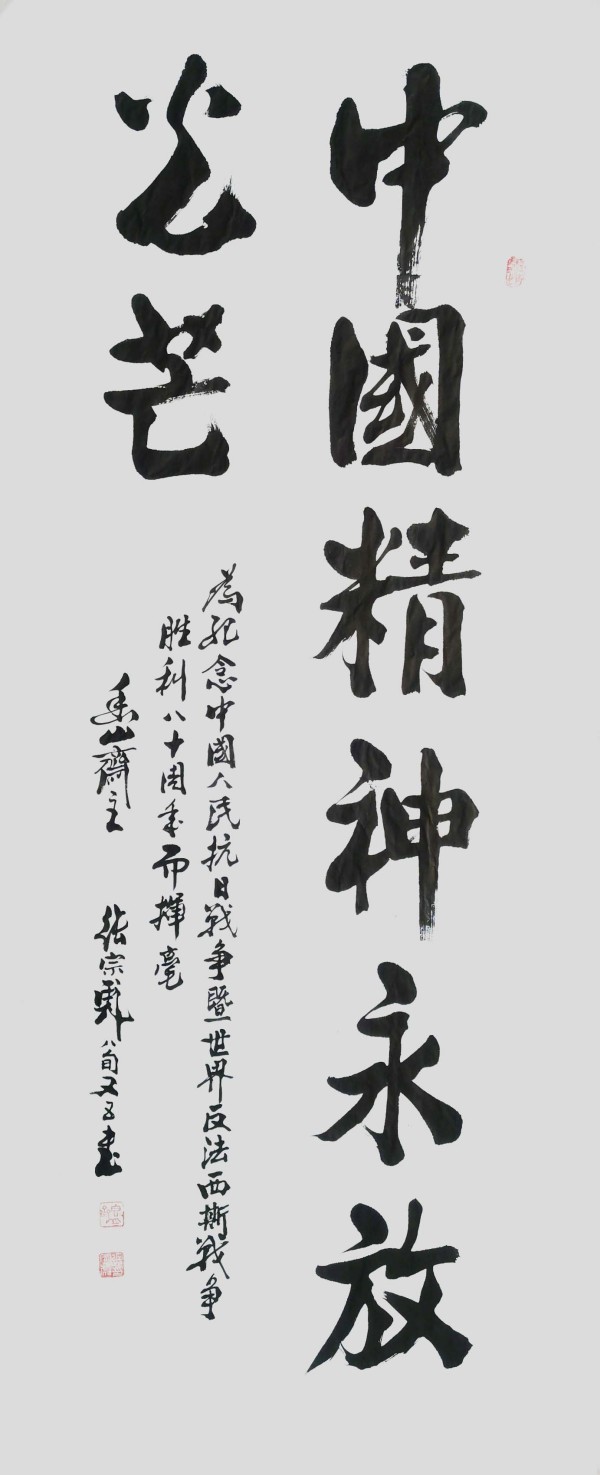 中國精神永放
光芒
為紀念中國人民抗日戰争暨世界反法西撕戰争
胜利八十周年而揮毫
山齋主 张宗彪八旬又五書